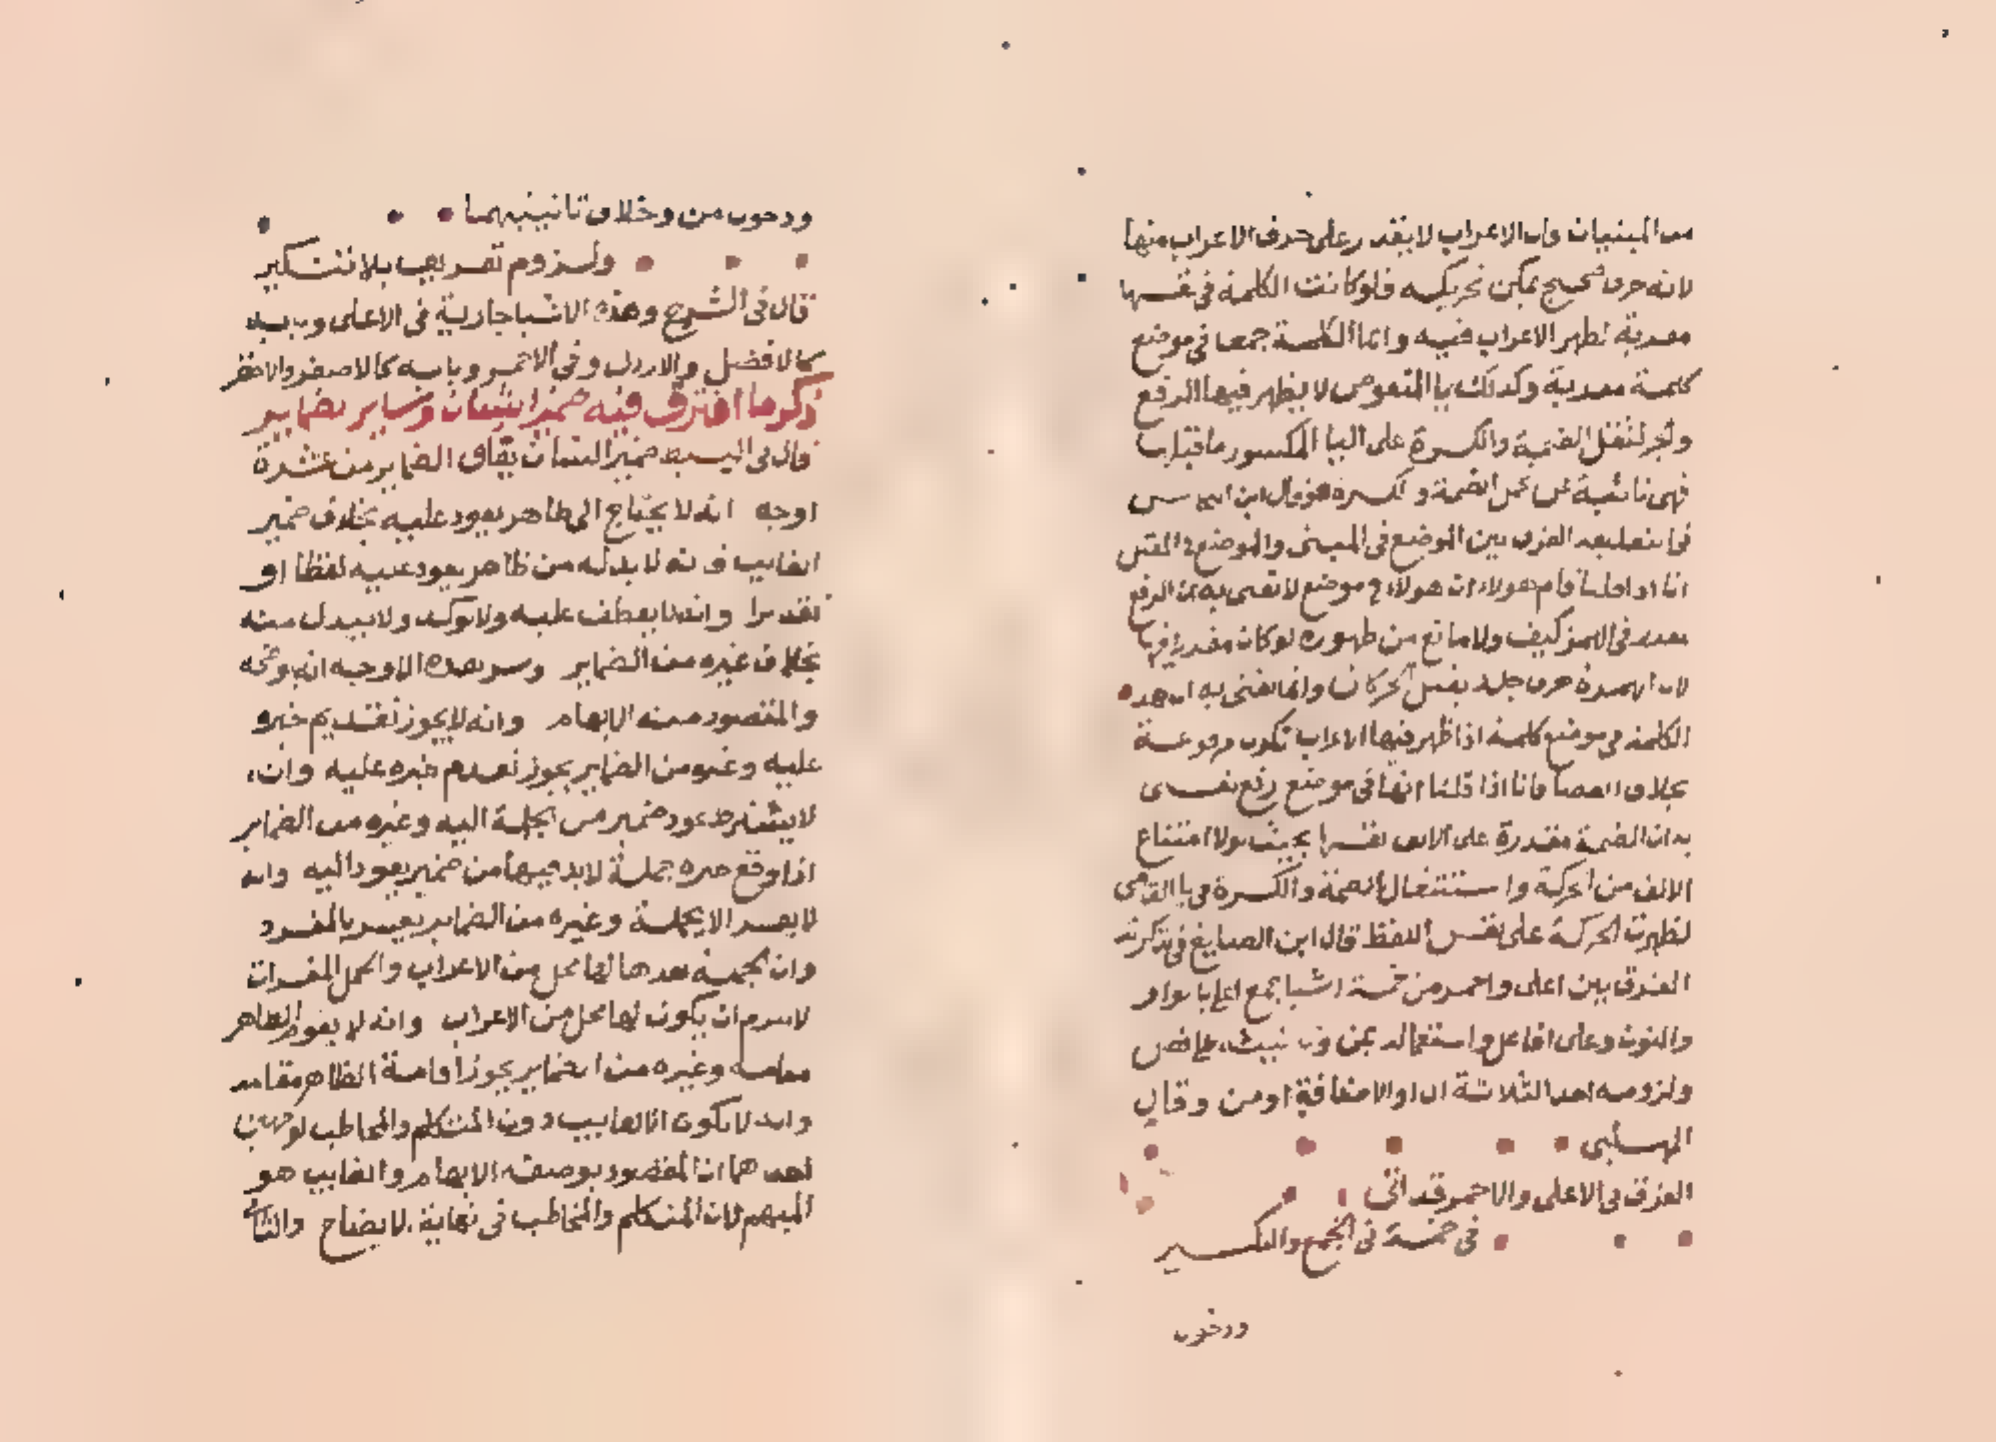 من المبنيات فان الاعراب لا يقدر على حرف الاعراب منها
لانه حرف صحيح يمكن تحريكه فلو كانت الكلمة فى نفسها
معربة لظهر الاعراب فيه وانما الكلمة جمعا فى موضع
كلمة معربة وكذلك يا المنقوص لا يظهر فيها الرفع
والجر لثقل الضمة والكسرة على اليا المكسور ما قبلها
فهى نائبة عن محل الضمة والكسرة قال ابن النحاس
فى التعليقه الفرق بين الموضع فى المبنى والموضع فى المعتل
انا اذا قلنا قام هولاء ان هولاء فى موضع لا نعنى به ان الرفع
مقدر فى الهمزة كيف ولا مانع من ظهوره لو كان مقدرا فيها
لان الهمزة حرف جلد يقبل الحركات وانما نعنى به ان هذه
الكلمة فى موضع كلمة اذا ظهر فيها الاعراب تكون مرفوعة
بخلاف العصا فانا اذا قلنا انها فى موضع رفع نعنى
به ان الضمة مقدرة على الالف نفسها بحيث لولا امتناع
الالف من الحركة واستثقال الضمة والكسرة فى يا القاضى
لظهرت الحركة على نفس اللفظ قال ابن الصايغ فى تذكرته
الفرق بين اعلى واحمر من خمسة اشيا جمع اعلى بالواو
والنون وعلى افاعل واستعماله بمن وتانيثه على فعلى
ولزومه احد الثلاثة ال او الاضافة او من وقال
المهلبى
الفرق فى الاعلى والاحمر قد اتى
فى خمسة فى الجمع والتكسير
ودخول
ودخول من وخلاف تانيثيهما
ولزوم تعريف بلا تنكير
قال فى الشرح وهذه الاشيا جارية فى الاعلى وبابه
كالافضل والارذل وفى الاحمر وبابه كالاصفر والاخضر
ذكر ما افترق فيه ضمير الشان وساير الضماير
قال فى البسيط ضمير الشان يفارق الضماير من عشرة
اوجه انه لا يحتاج الى ظاهر يعود عليه بخلاف ضمير
الغايب فانه لا بد له من ظاهر يعود عليه لفظا او
تقديرا وانه لا يعطف عليه ولا يوكد ولا يبدل منه
بخلاف غيره من الضماير وسر هذه الاوجه انه يوضحه
والمقصود منه الابهام وانه لا يجوز تقديم خبره
عليه وغيره من الضماير يجوز تقديم خبره عليه وانه
لا يشترط عود ضمير من الجملة اليه وغيره من الضماير
اذا وقع خبره جملة لا بد فيها من ضمير يعود اليه وانه
لا يفسر الا بجملة وغيره من الضماير يفسر بالمفرد
وان الجملة بعده لها محل من الاعراب والجمل المفسرات
لا يلزم ان يكون لها محل من الاعراب وانه لا يقوم الظاهر
مقامه وغيره من الضماير يجوز اقامة الظاهر مقامه
وانه لا يكون الا لغايب دون المتكلم والمخاطب لوجهين
احدهما ان المقصود بوضعه الابهام والغايب هو
المبهم لان المتكلم والمخاطب فى نهاية الايضاح والثانى